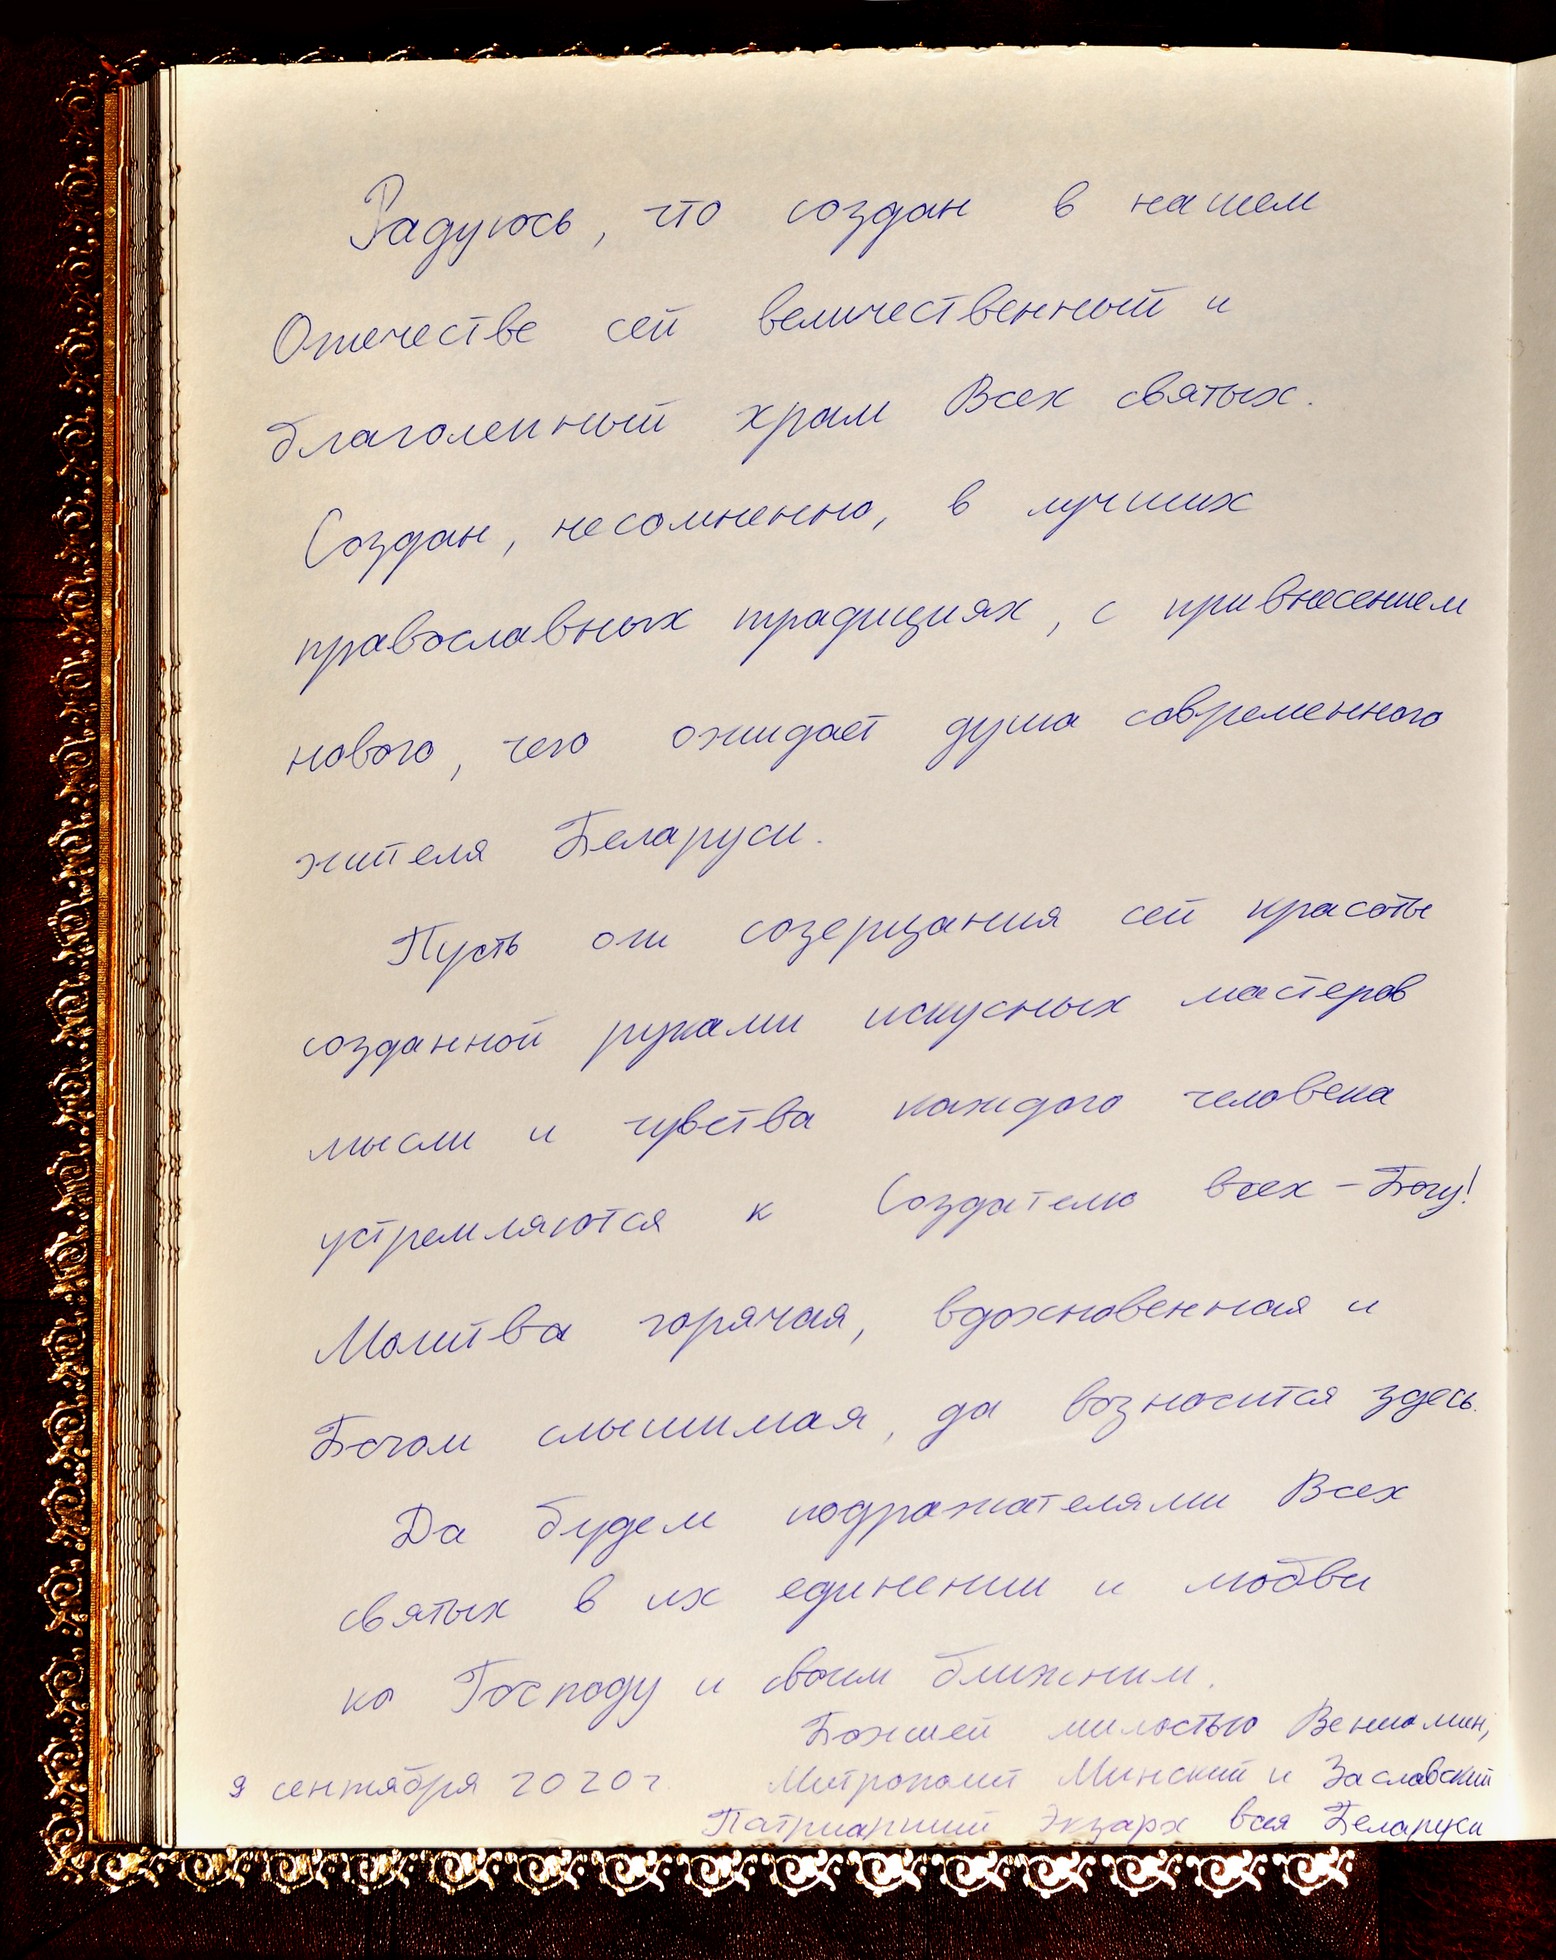 Радуюсь, что создан в нашем
Отечестве сей величественный и
благолепный храм Всех святых.
Создан, несомненно, в лучших
православных традициях, с привнесением
нового, чего ожидает душа современного
жителя Беларуси.
Пусть от созерцания сей красоты
созданной руками искусных мастеров
мысли и чувства каждого человека
устремляются к Создателю всех – Богу!
Молитва горячая, вдохновенная и
Богом слышимая, да возносится здесь.
Да будем подражателями Всех
святых в их единении и любви
ко Господу и своим ближним.
Божией милостью Вениамин,
9 сентября 2020 г. Митрополит Минский и Заславский
Патриарший Экзарх всея Беларуси